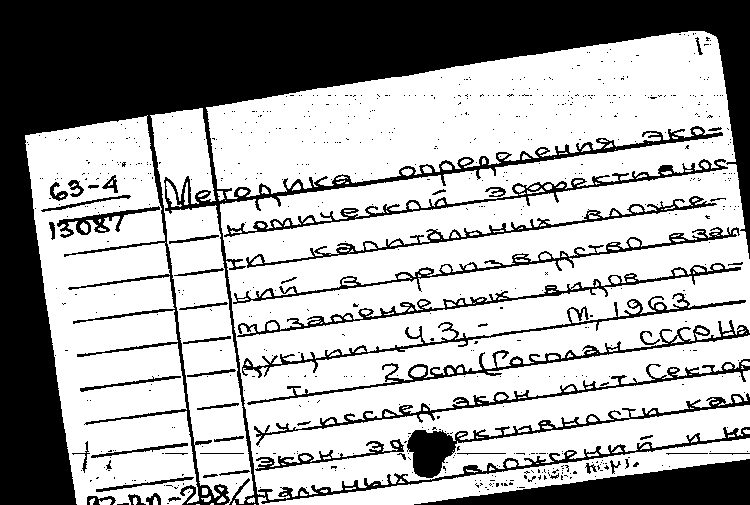 63-4
13087
Методика определения эко-
номической эффективнос-
ти капитальных вложе-
ний в производство взаи-
мозаменяемых видов про-
дукции. Ч.3,- М., 1963
т. 20см. (Госплан СССР. На
уч-исслед. экон. ин-т. Сектор
экон. эффективности капи
тальных вложений и но